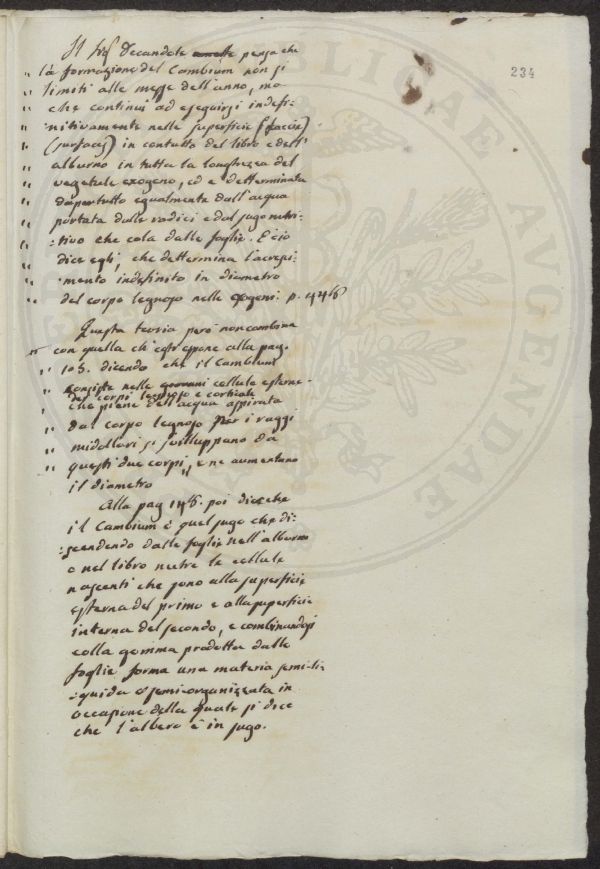 234
Il Sig.r Decandole pensa che
" la formazione del Cambium non si
" limiti alle messe dell'anno, ma
" che continui ad eseguirsi indefi-
" nitivamente nelle superficie (faccie)
" (surfaces) in contatto del libro e dell'
" alburno in tutta la lunghezza del
" vegetale exogeno, ed è determinata
" dapertutto egualmente dall'acqua
" portata dalle radici e dal sugo nutri-
" -tivo che cola dalle foglie. E ciò
" dice egli, che determina l'acresci-
" -mento indefinito in diametro
" del corpo legnoso nelle exogeni. p.
Questa teoria però non combina
con quella ch' espone alla pag.
" 105. dicendo che il Cambium
" consiste nelle cellule esterne
dei corpi legnoso e corticale
" che piene dell'acqua aspirata
" dal corpo legnoso per i raggi
" midollari si sviluppano da
" questi due corpi, e ne aumentano
il diametro
Alla pag poi dice che
il Cambium è quel sugo che di-
-scendendo dalle foglie nell'alburno
o nel libro nutre le cellule
nascenti che sono alla superficie
esterna del primo e alla superficie
interna del secondo, e combinandosi
colla gomma prodotta dalle
foglie forma una materia semi-li-
-quida o semi-organizzata in
occasione della quale si dice
che l'albero è in sugo.